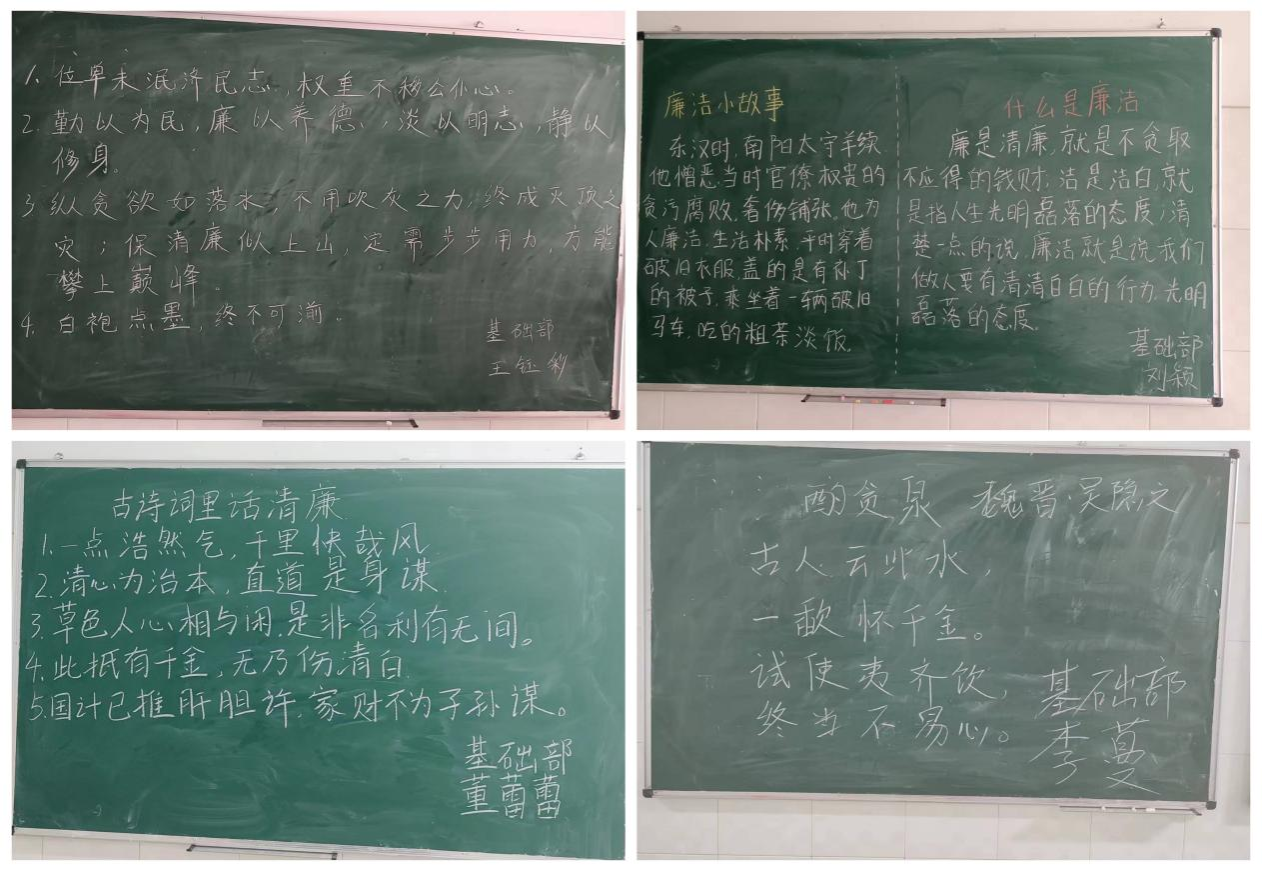 1. 位卑未泯济民志，权重不移公仆心。
2. 勤以为民，廉以养德，淡以明志，静以
修身。
3 纵贪欲如落水，不用吹灰之力，终成灭顶之
灾；保清廉似上山，定需步步用力，方能
攀上巅峰。
4. 白袍点墨，终不可湔。
基础部
王钰彩
廉洁小故事
东汉时，南阳太守羊续
他憎恶当时官僚权贵的
贪污腐败，奢侈铺张，他为
人廉洁，生活朴素，平时穿着
破旧衣服，盖的是有补丁
的被子，乘坐着一辆破旧
马车，吃的粗茶淡饭
什么是廉洁
廉是清廉，就是不贪取
不应得的钱财；洁是洁白，就
是指人生光明磊落的态度；清
楚一点的说，廉洁就是说我们
做人要有清清白白的行为，光明
磊落的态度。
基础部
刘颖
古诗词里话清廉
1. 一点浩然气，千里快哉风
2. 清心为治本，直道是身谋
3. 草色人心相与闲，是非名利有无间。
4. 此抵有千金，无乃伤清白
5. 国计已推肝胆许，家财不为子孙谋。
基础部
董蕾蕾
酌贪泉 魏晋·吴隐之
古人云此水，
一歃怀千金。
试使夷齐饮，
终当不易心。
基础部
李蔓